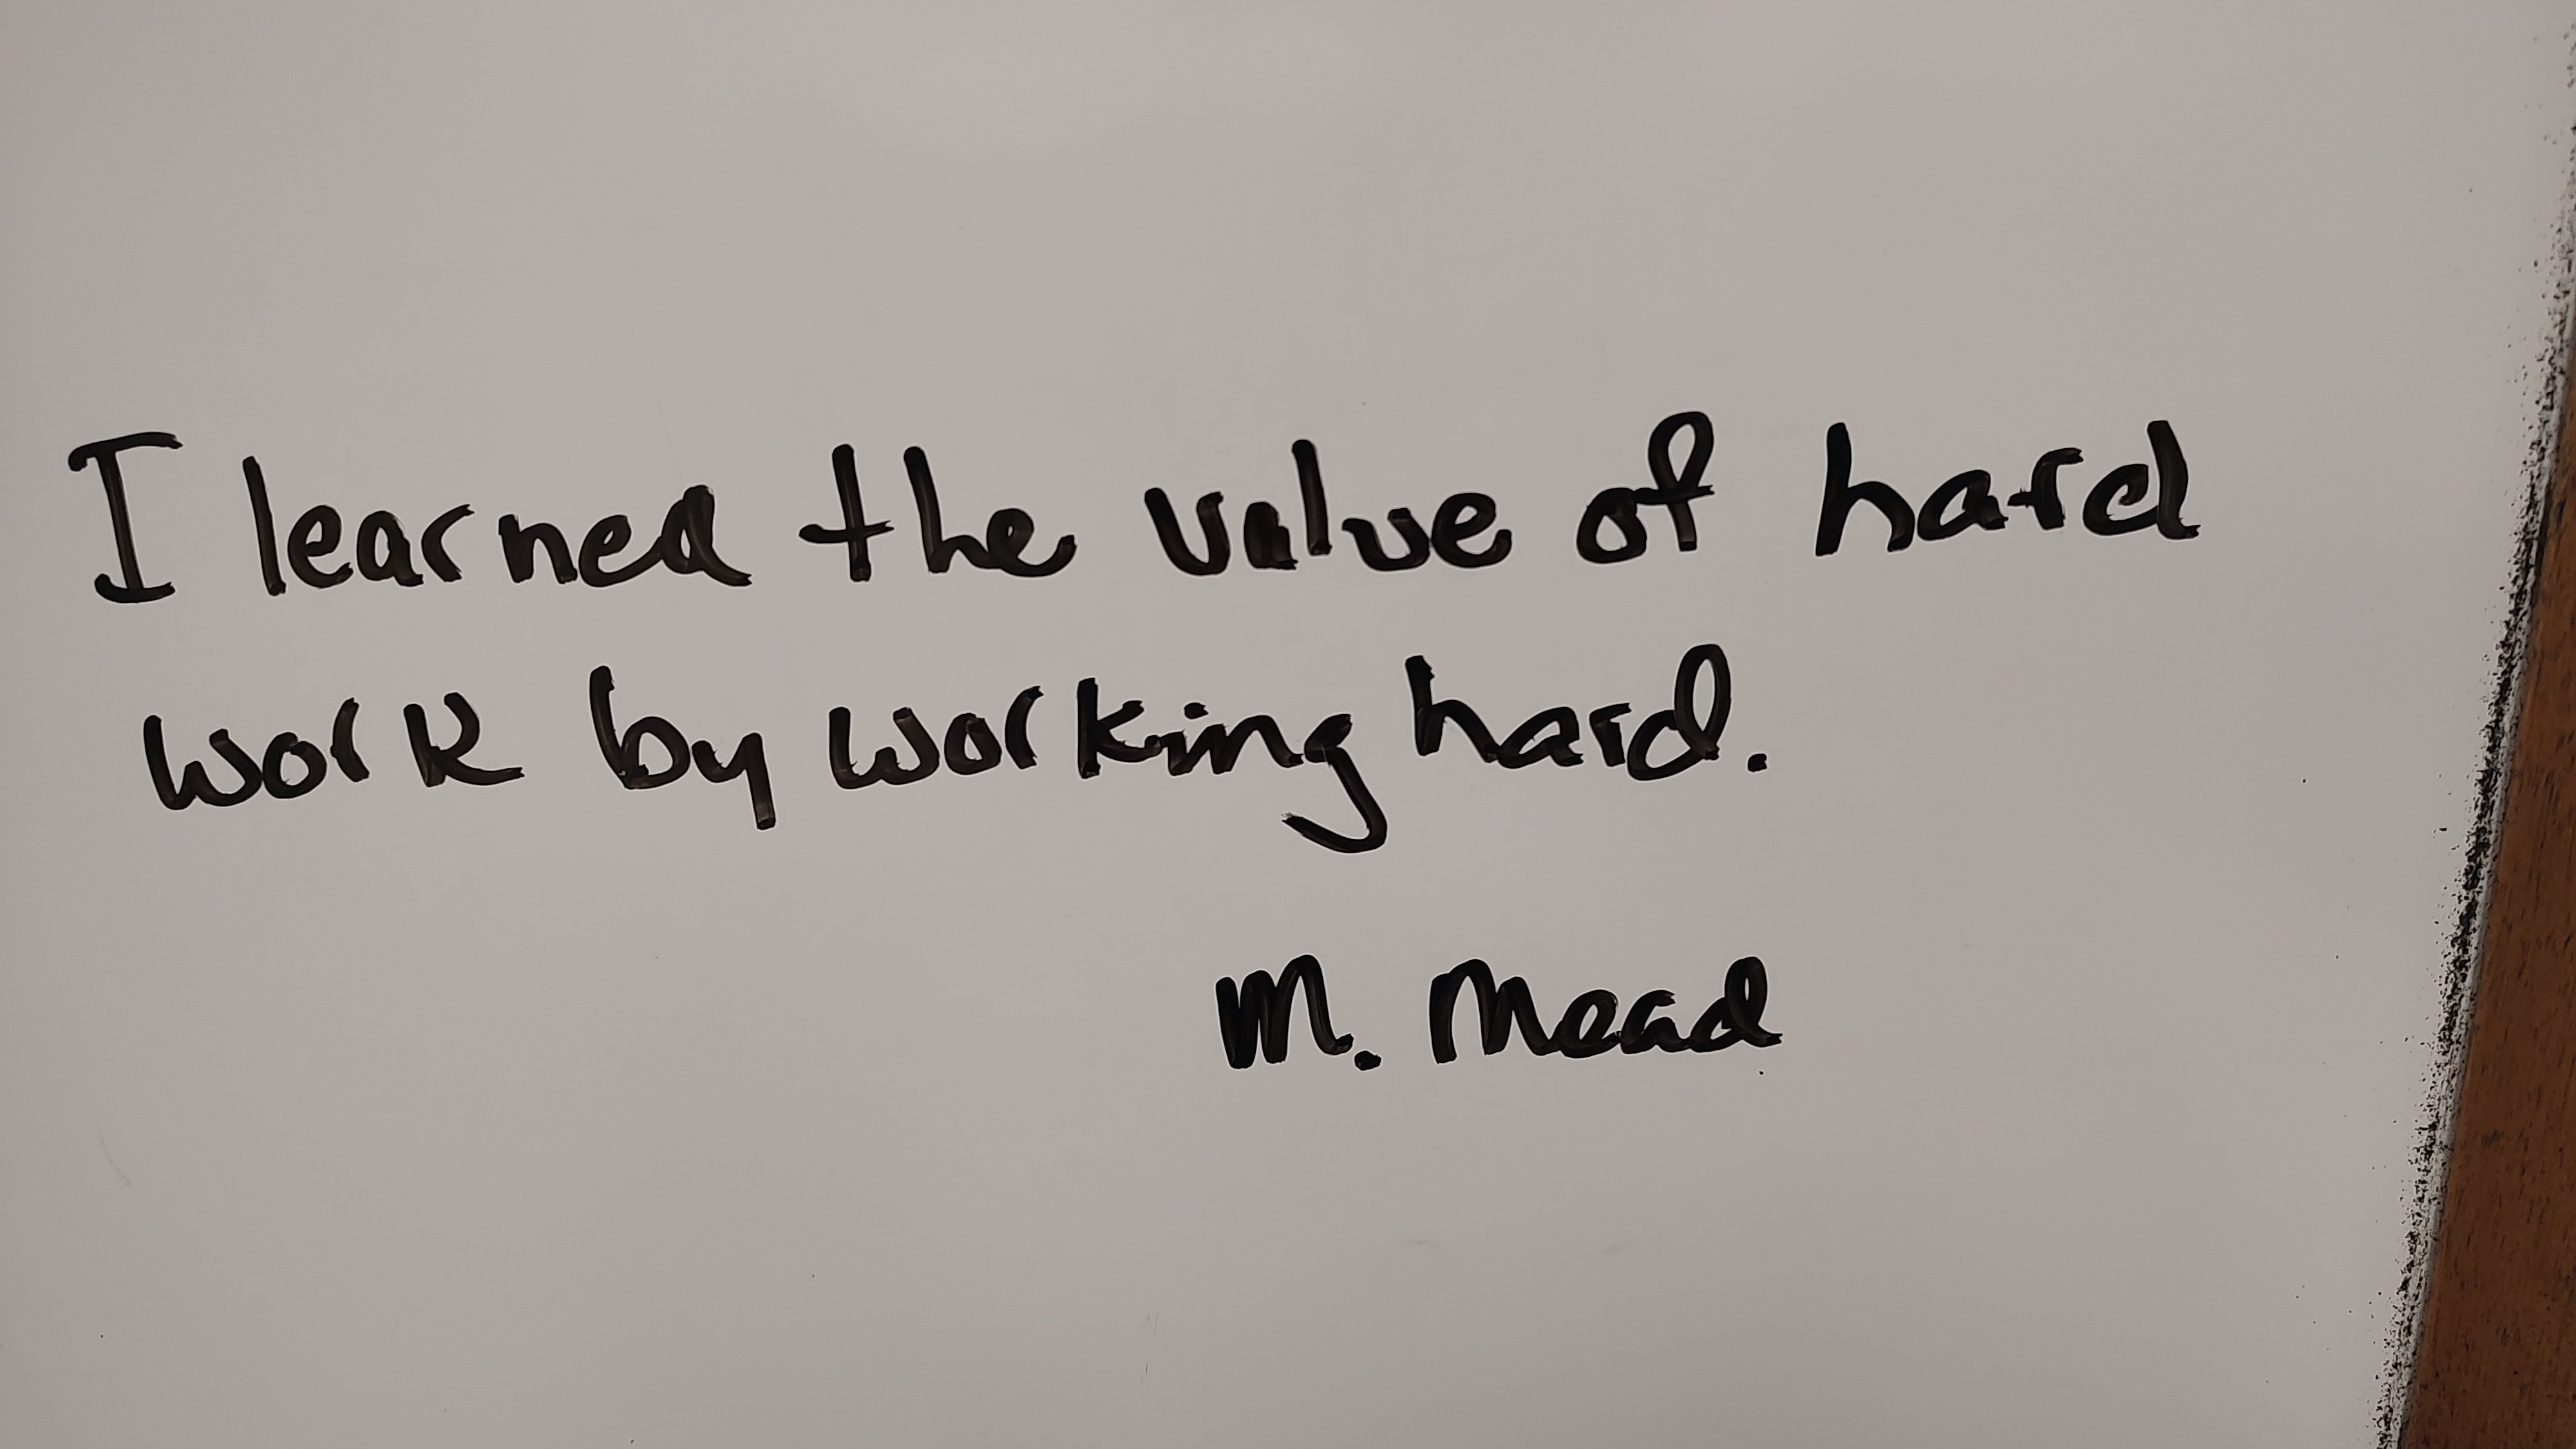 I learned the value of hard
work by working hard.
M. Mead